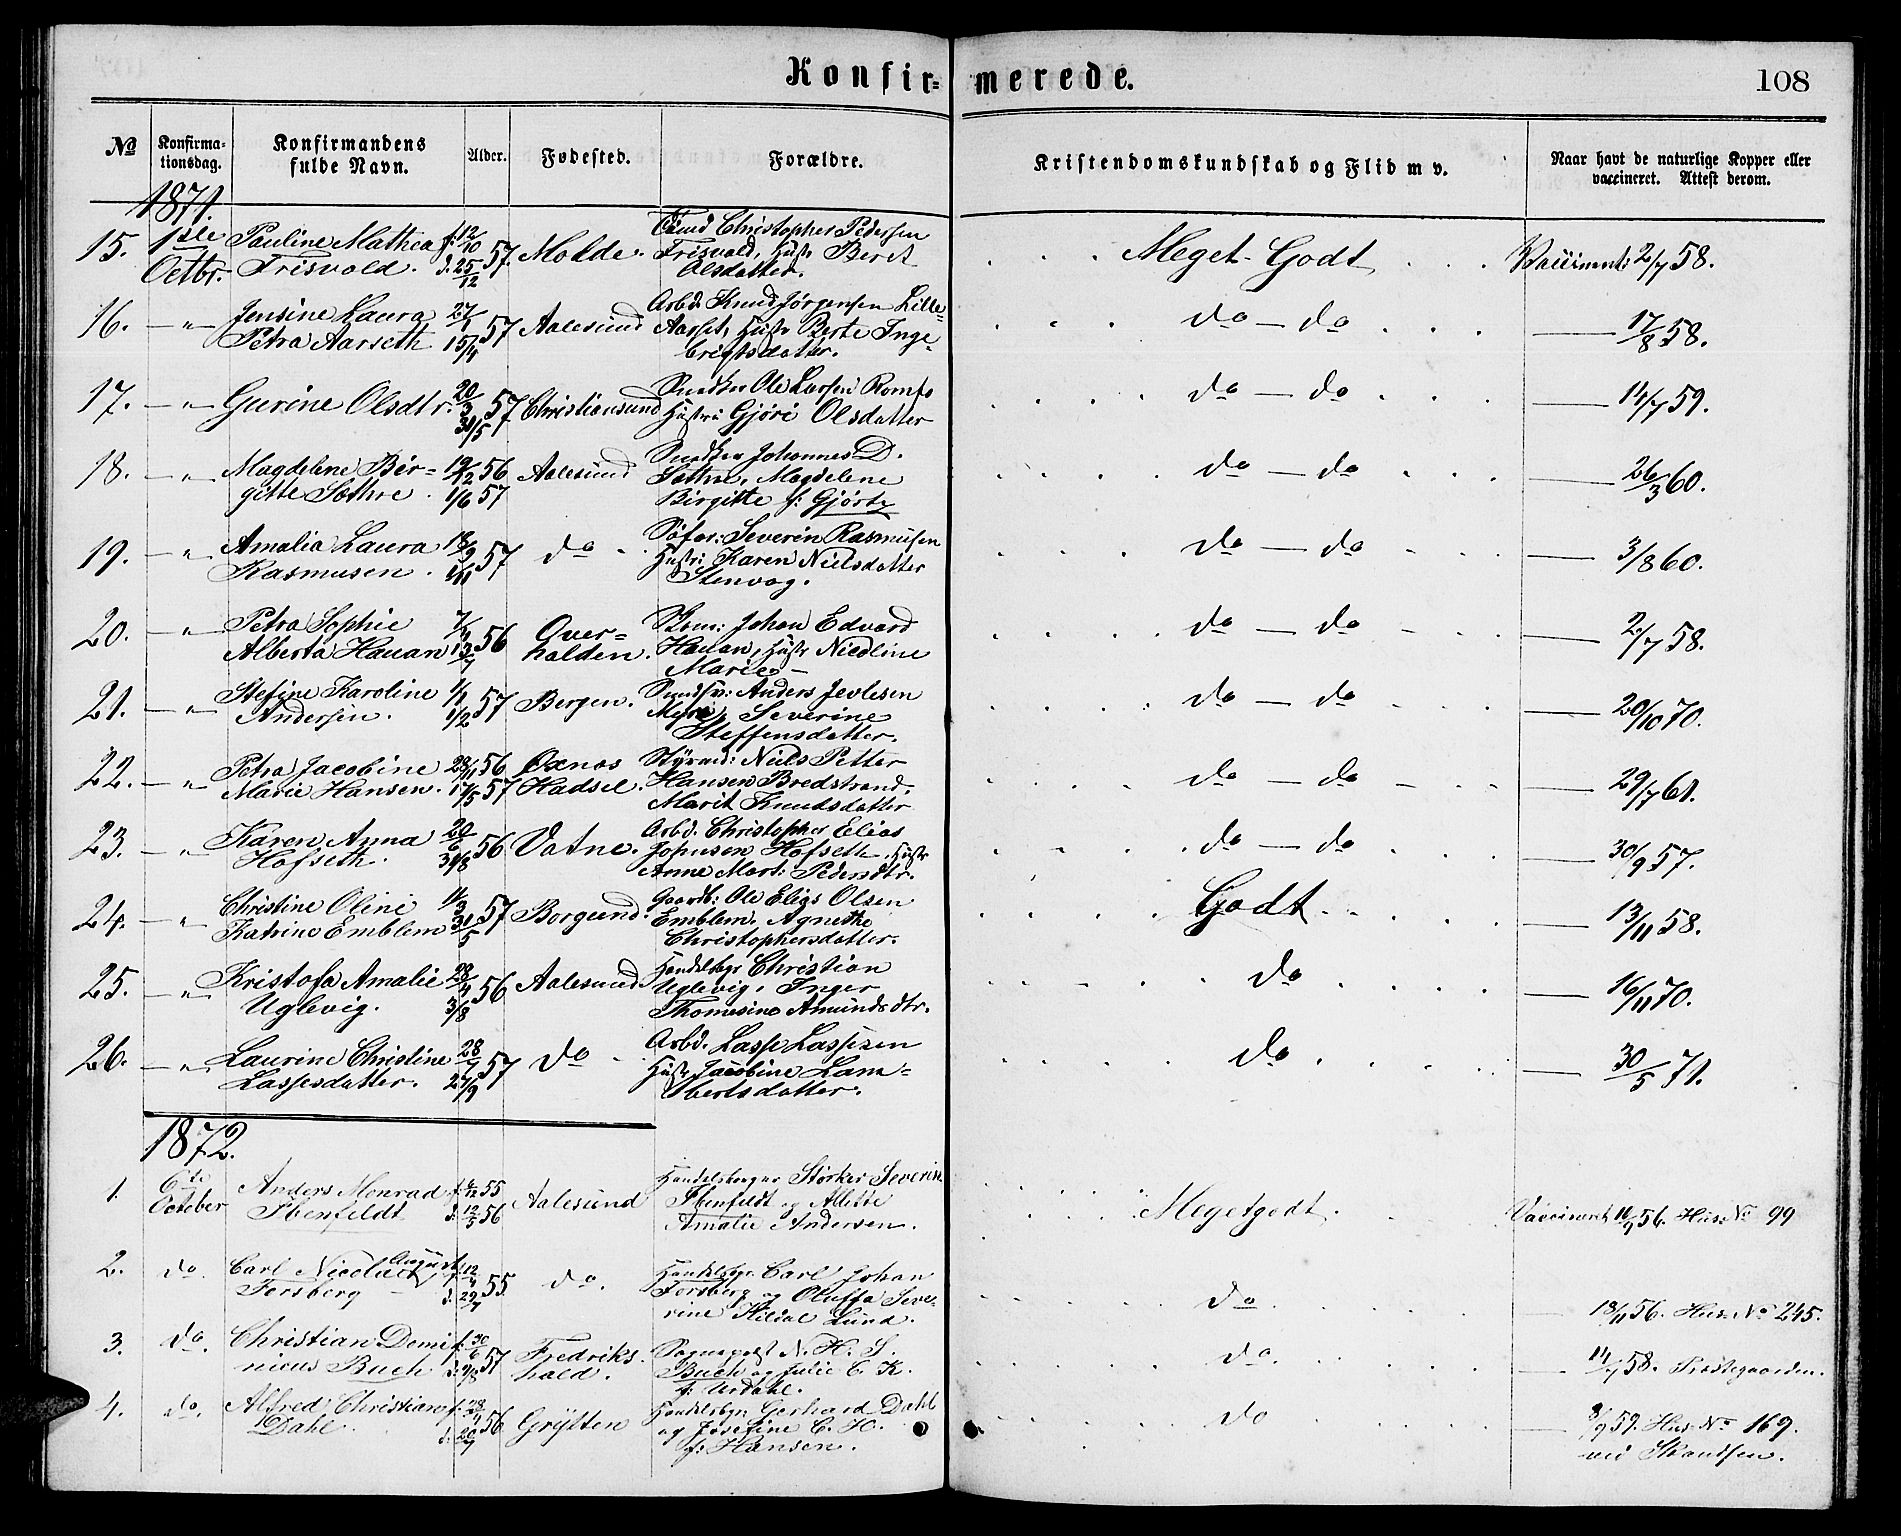 Konfir=merede.
108
No
Konfirma-
tionsdag.
Konfirmandens
fulde Navn.
Alder.
Fødested.
Forældre.
Kristendomskundskab og Flid m v.
Naar havt de naturlige Kopper eller
vaccineret. Attest derom.
1871.
15. 1ste Pauline Mathea f. 12/10 57. Molde. Christopher Pedersen
Octbr. Frisvold. d. 25/12 Frisvold, Hustr Berit
Olsdatter.
Meget Godt 2/7 58.
16. — " — Jensine Laura 27/1 57 Aalesund Arbd. Knud Jørgensen Lille-
Petra Aarseth 15/4 Aarset, Hustr Berte Inge-
brigtsdatter.
do — do — 17/8 58.
17. — " — Gurine Olsdtr. 20/3 57 Christiansund Ole Larsen Romfo
31/5 Hustru Gjøri Olsdatter
do — do — 14/7 59.
18. — " Magdelene Bir= 19/12 56 Aalesund Johannes D.
gitte Sæthre. 1/6 57 Sæthre, Magdelene
Birgitte f. Gjørtz
do — do — 26/3 60.
19. — " Amalia Laura 18/9 57 do Severin Rasmusen
Rasmusen. Hustr: Karen Nielsdatter
Stenvag.
do — do — 3/8 60.
20. — " Petra Sophie 7/4 56 Over= Johan Edvard
Alberta Hauan 13/7 halden. Hauan, Hustr Nicoline
Marie —
do — do — 2/7 58.
21. — " — Stefine Karoline 1/1 57 Bergen. Anders
Andersen. 1/2 Severine
Steffensdatter.
do — do — 20/10 70.
22. — " Petra Jacobine 28/11 56 Oxnes Styrmd: Niels Petter
Marie Hansen. 17/5 57 Hadsel. Hansen Bredstrand.
Marit Knudsdatter
do — do — 29/7 61.
23. — " Karen Anna 20/6 56 Vatne. Arbd. Christopher Elias
Hofseth. 31/8 Johnsen Hofseth, Hustr
Anne Mart: Pedersdtr.
do — do — 30/9 57.
24. — " Christine Oline 11/3 57 Borgund. Gaardb: Ole Elias Olsen
Katrine Emblem 31/5 Emblem. Agnethe
Christophersdatter.
Godt — 13/11 58.
25. — " — Kristofa Amalie 28/4 56 Aalesund Handelsbgr Christian
Uglevig. 3/8 Uglevig. Inger
Thomasine Amundsdtr.
do — 16/11 70.
26. — " Laurine Christine 28/7 57 do Arbd. Lasse Lassesen
Lassesdatter. 27/9 Hustr Jacobine Lam=
bertsdatter.
do — 30/5 71.
1872.
1. 6te Anders Monrad f. 55 Aalesund Handelsborger Størker Severin
October Ibenfeldt d: 12/5 56 Ibenfeldt og Alette
Amalie Andersen.
Megetgodt. Vaccineret 16/9 56. Hus: No 99
2. do. Carl Nicolai August f. 12/4 55. do. Handelsbgr. Carl Johan
Forsberg d: 29/7 Forsberg og Oluffa Seve-
rine Hildal Lund.
do 18/11 56. Hus: No 245.
3. do. Christian Domi- f: 30/6 57 Fredriks- Sognepræst N. H. S.
nicus Buch d: 9/8 hald. Buch og Julie C. K.
f: Urdahl.
do. — 14/7 58. Præstegaarden.
4. do. Alfred Christian f. 28/4 56 Grytten Handelsbgr. Gerhard Dahl
Dahl. d: 20/7 og Josefine C. H.
f: Hansen.
do — 8/9 59. Hus No 169.
ved Skandsen.